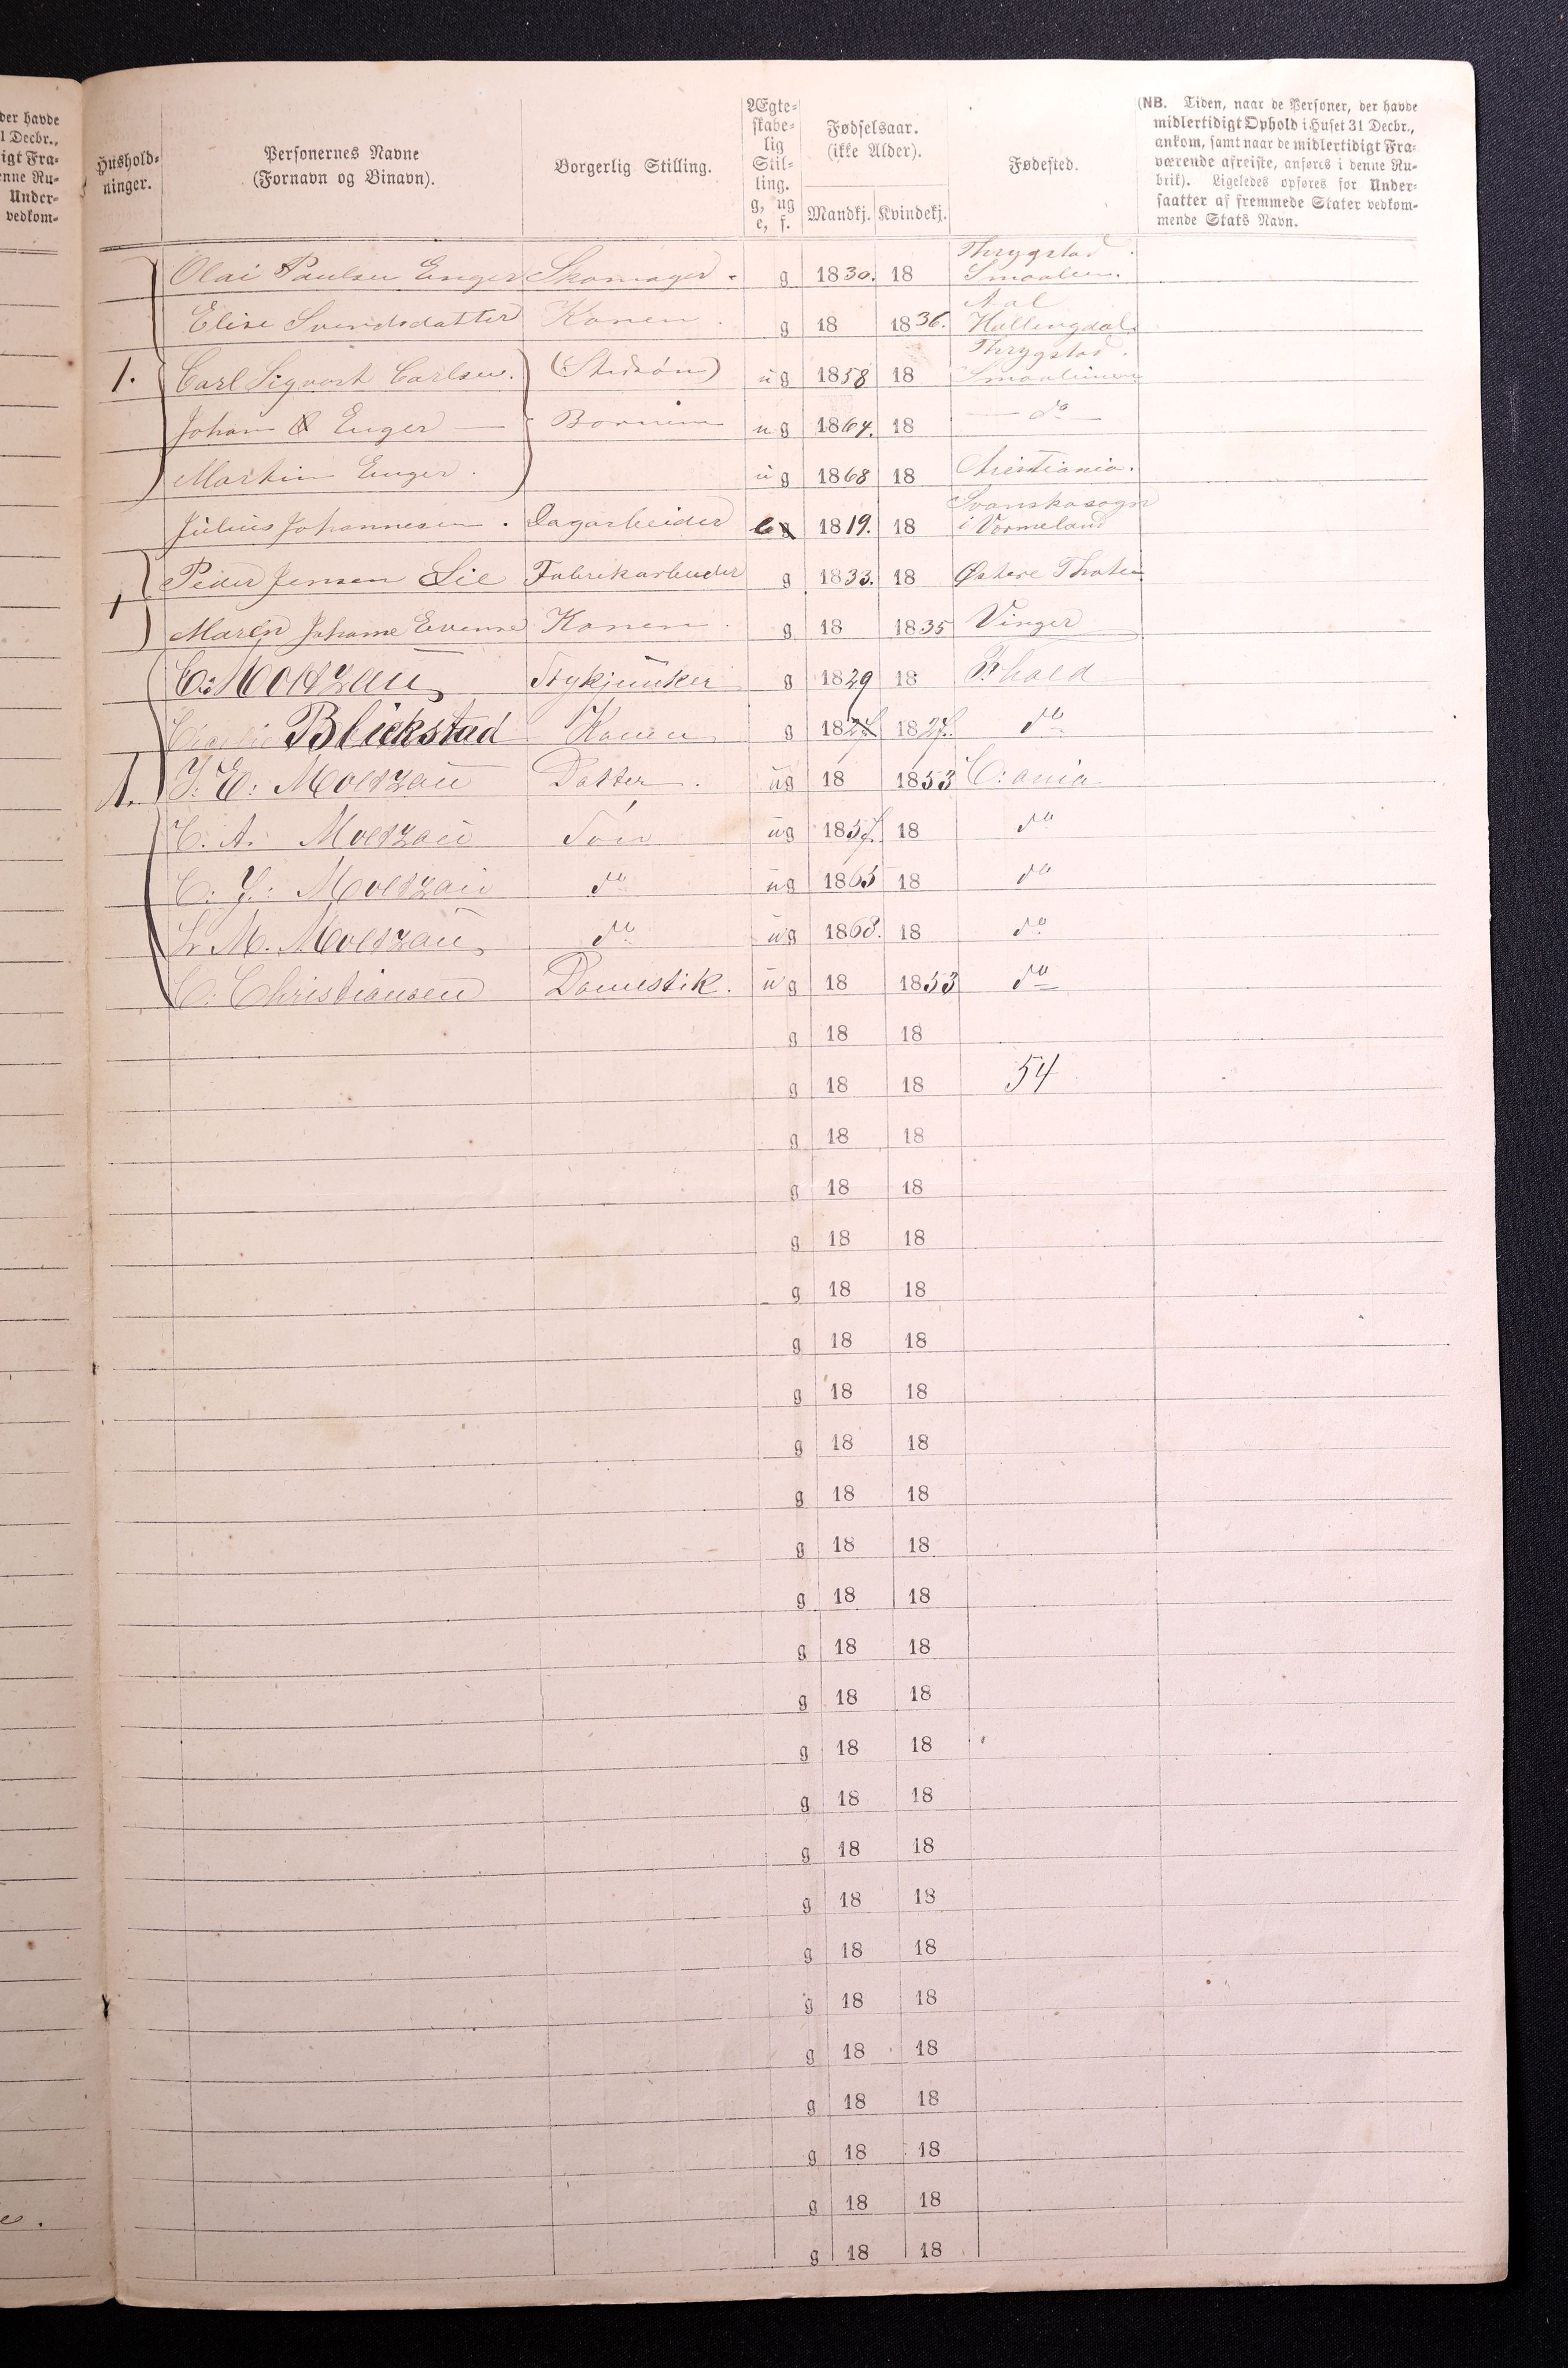 der havde
1 Decbr.,
igt Fra=
enne Ru=
Under=
vedkom=
Hushold=
ninger.
Personernes Navne
(Fornavn og Binavn).
Borgerlig Stilling.
Ægte=
skabe=
lig
Stil=
ling.
g, ug
e, f.
Fødselsaar.
(ikke Alder).
Mandkj. Kvindekj.
Fødested.
(NB. Tiden, naar de Personer, der havde
midlertidigt Ophold i Huset 31 Decbr.,
ankom, samt naar de midlertidigt Fra=
værende afreiste, anføres i denne Ru=
brik). Ligeledes opføres for Under=
saatter af fremmede Stater vedkom=
mende Stats Navn.
Thrygstad
Olai Paulsen Enger Skomager. g 1830. 18 Smaalen.
Aal
Elise Svendsdatter Konen. g 18 1836. Hallingdal.
Thrygstad.
1. Carl Sigvart Carlsen. (Stedsøn) ug 1858 18 Smaalenene
Johan O Enger Børnene ug 1864. 18 do
Martin Enger. ug 1868 18 Christiania.
Svanskasogn
Julius Johannesen. Dagarbeider e g 1819. 18 i Vermeland
1 Peder Jensen Lie Fabrikarbeider g 1833. 18 Østere Thoten
Maren Johanne Evense Konen. g 18 1835 Vinger
C: Moltzau Stykjunker g 1829 18 Fr:hald
Blickstad Konen g 1827 1827. do
1. J. E. Moltzau Datter. ug 18 1853 C:ania
C. A. Moltzau Søn ug 1857. 18 do
C. J. Moltzau do ug 1865 18 do
L. M. Moltzau do ug 1868. 18 do
C. Christiansen Domestik. ug 18 1853 do
g 18 18
g 18 18 54
g 18 18
g 18 18
g 18 18
g 18 18
g 18 18
g 18 18
g 18 18
g 18 18
g 18 18
g 18 18
g 18 18
g 18 18
g 18 18
g 18 18
g 18 18
g 18 18
g 18 18
g 18 18
g 18 18
g 18 18
g 18 18
g 18 18
g 18 18